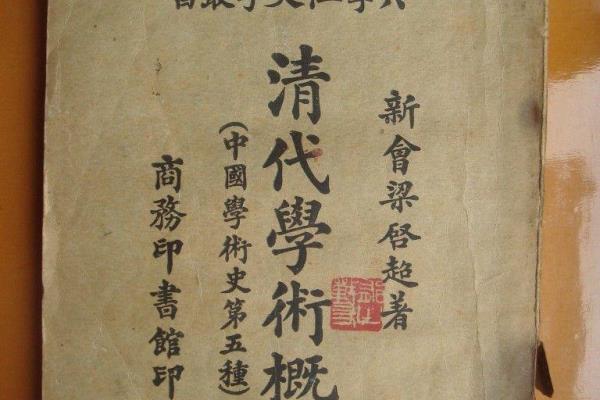 新會梁啓超著
清代學術概
(中國學術史第五種)
商務印書館印